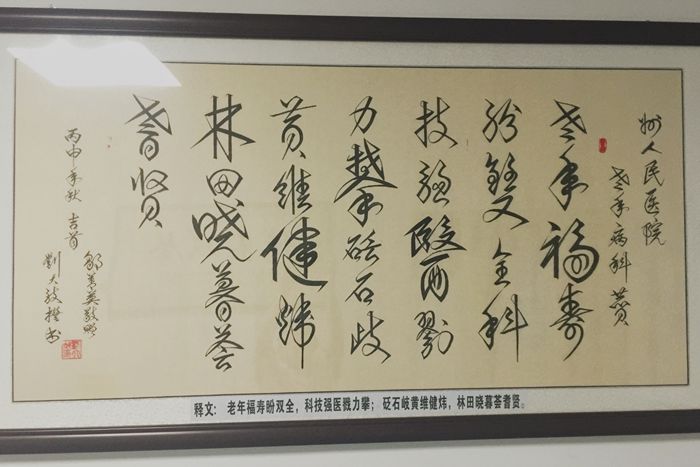 州人民医院
老年病科 赞
老年福寿
盼雙全科
技强醫戮
力攀砭石歧
黄維健炜
林田晓暮荟
耆贤
丙申年秋 吉首
敬赠
劉大 撰书
释文: 老年福寿盼双全，科技强医戮力攀；砭石岐黄维健炜，林田晓暮荟耆贤。